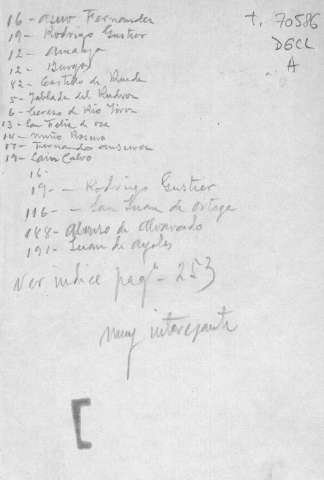 16 - Asur Fernandez
t. 70586
19 - Rodrigo Gustior
DGCL
12 - Amaya
A
12 - Burgos
82 - Castillo de Rueda
5 - Tablada del Rudron
6 - Cereso de Rio Tiron
13 - San Felix de oca
14 - Nuño Rasura
17 - Fernando
19 - Lain Calvo
16
19 - - Rodrigo Gustior
116 - - San Juan de Ortega
188 - Alonso de Alvarado
191 - Juan de
Ver indice pagª - 253
muy interesante